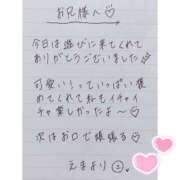 お兄様へ♡
今日は遊びに来てくれて
ありがとうございました♡
可愛い！っていっぱい褒
めてくれて私もイチャイ
チャ楽しかったよ〜♡
次はお口で頑張る♡
えまより